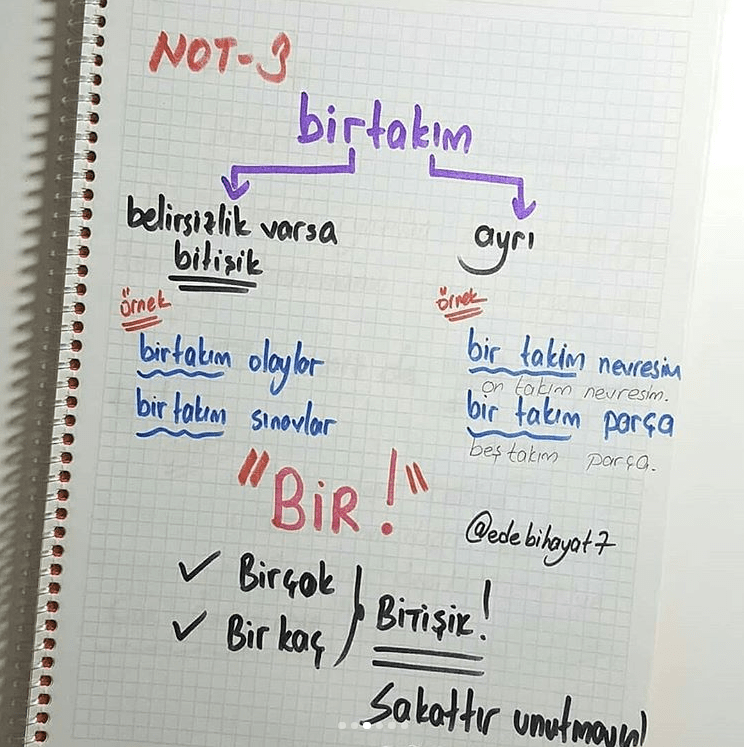 NOT-3
birtakım
belirsizlik varsa
bitişik
ayrı
örnek
birtakım olaylar
birtakım sınavlar
örnek
bir takim nevresim
on takım nevresim.
bir takım parça
beş takım parça.
"BİR!"
@edebihayat7
✓ Birçok
✓ Birkaç
BİTİŞİK!
Sakattır unutmayın!